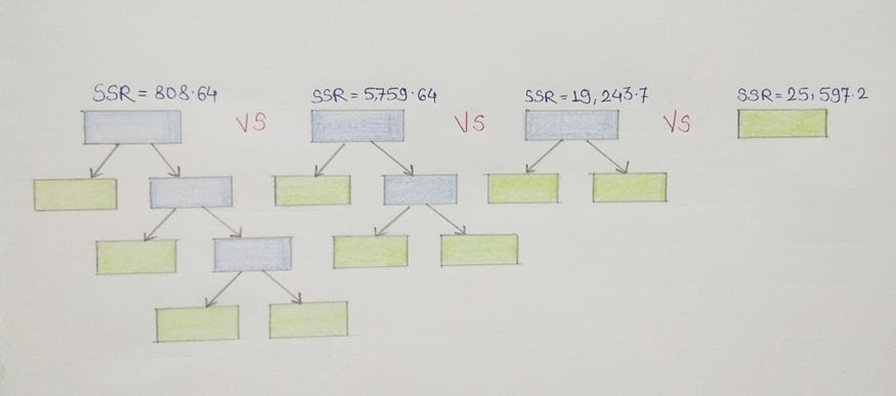 SSR = 808.64
VS
SSR = 5,759.64
VS
SSR = 19,243.7
VS
SSR = 25,597.2